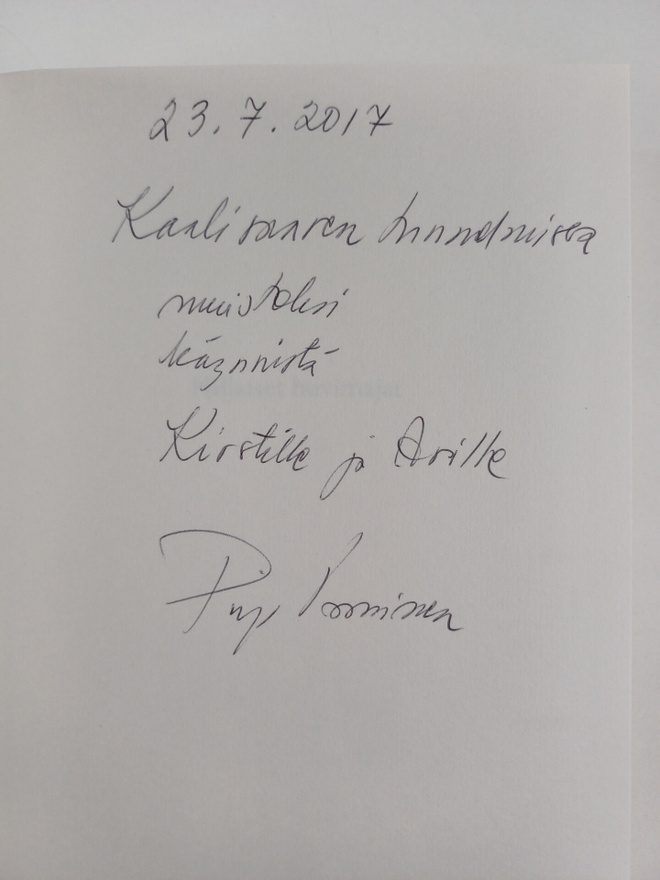 23.7.2017
Kaalisaaren tunnelmissa
muistoksi
käynnistä
Kirstille ja Arille